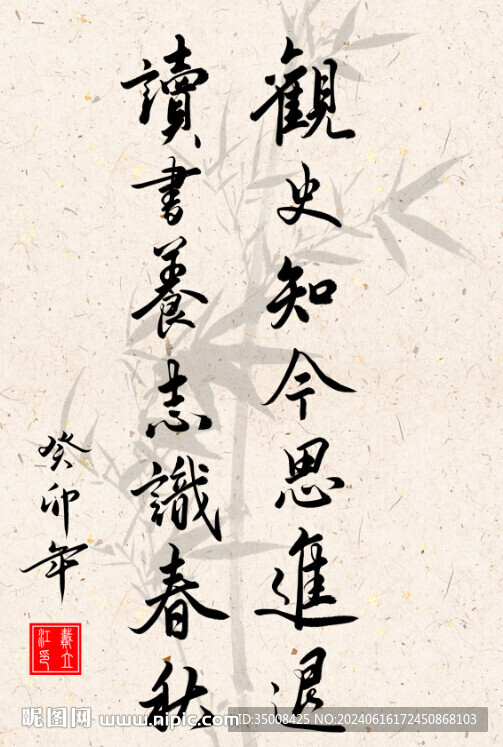 觀史知今思進退
讀書養志識春秋
癸卯年
戴立
江印
昵图网 www.nipic.com
ID:35008425 NO:20240616172450868103